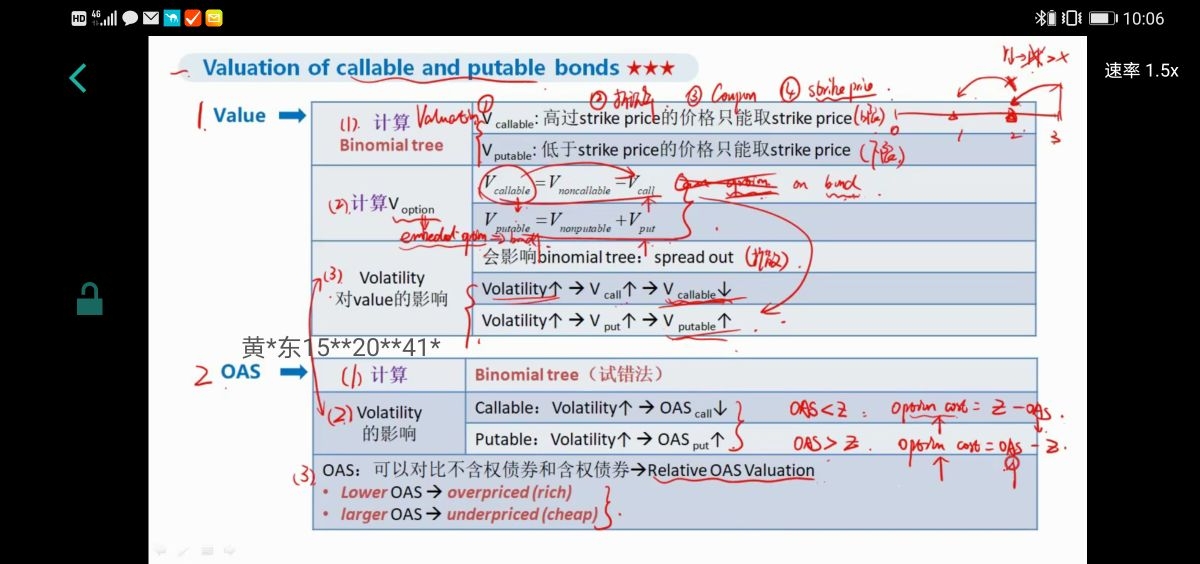 HD 4G 10:06
Valuation of callable and putable bonds ★★★
速率 1.5x
② ③ Coupon ④ strike price
1. Value → (1). 计算 Binomial tree Valuation ①
V callable: 高过strike price的价格只能取strike price
0 1 2 3
V putable: 低于strike price的价格只能取strike price
(2). 计算V option
V callable = V noncallable − V call on bond
V putable = V nonputable + V put
embedded option
(3) Volatility 对value的影响
会影响binomial tree: spread out
Volatility↑ → V call↑ → V callable↓
Volatility↑ → V put↑ → V putable↑
黄*东15**20**41*
2 OAS → (1) 计算 Binomial tree（试错法）
(2) Volatility 的影响
Callable: Volatility↑ → OAS call↓ OAS < Z. option cost = Z − OAS.
Putable: Volatility↑ → OAS put↑ OAS > Z. option cost = OAS − Z.
(3) OAS: 可以对比不含权债券和含权债券→Relative OAS Valuation
• Lower OAS → overpriced (rich)
• larger OAS → underpriced (cheap)